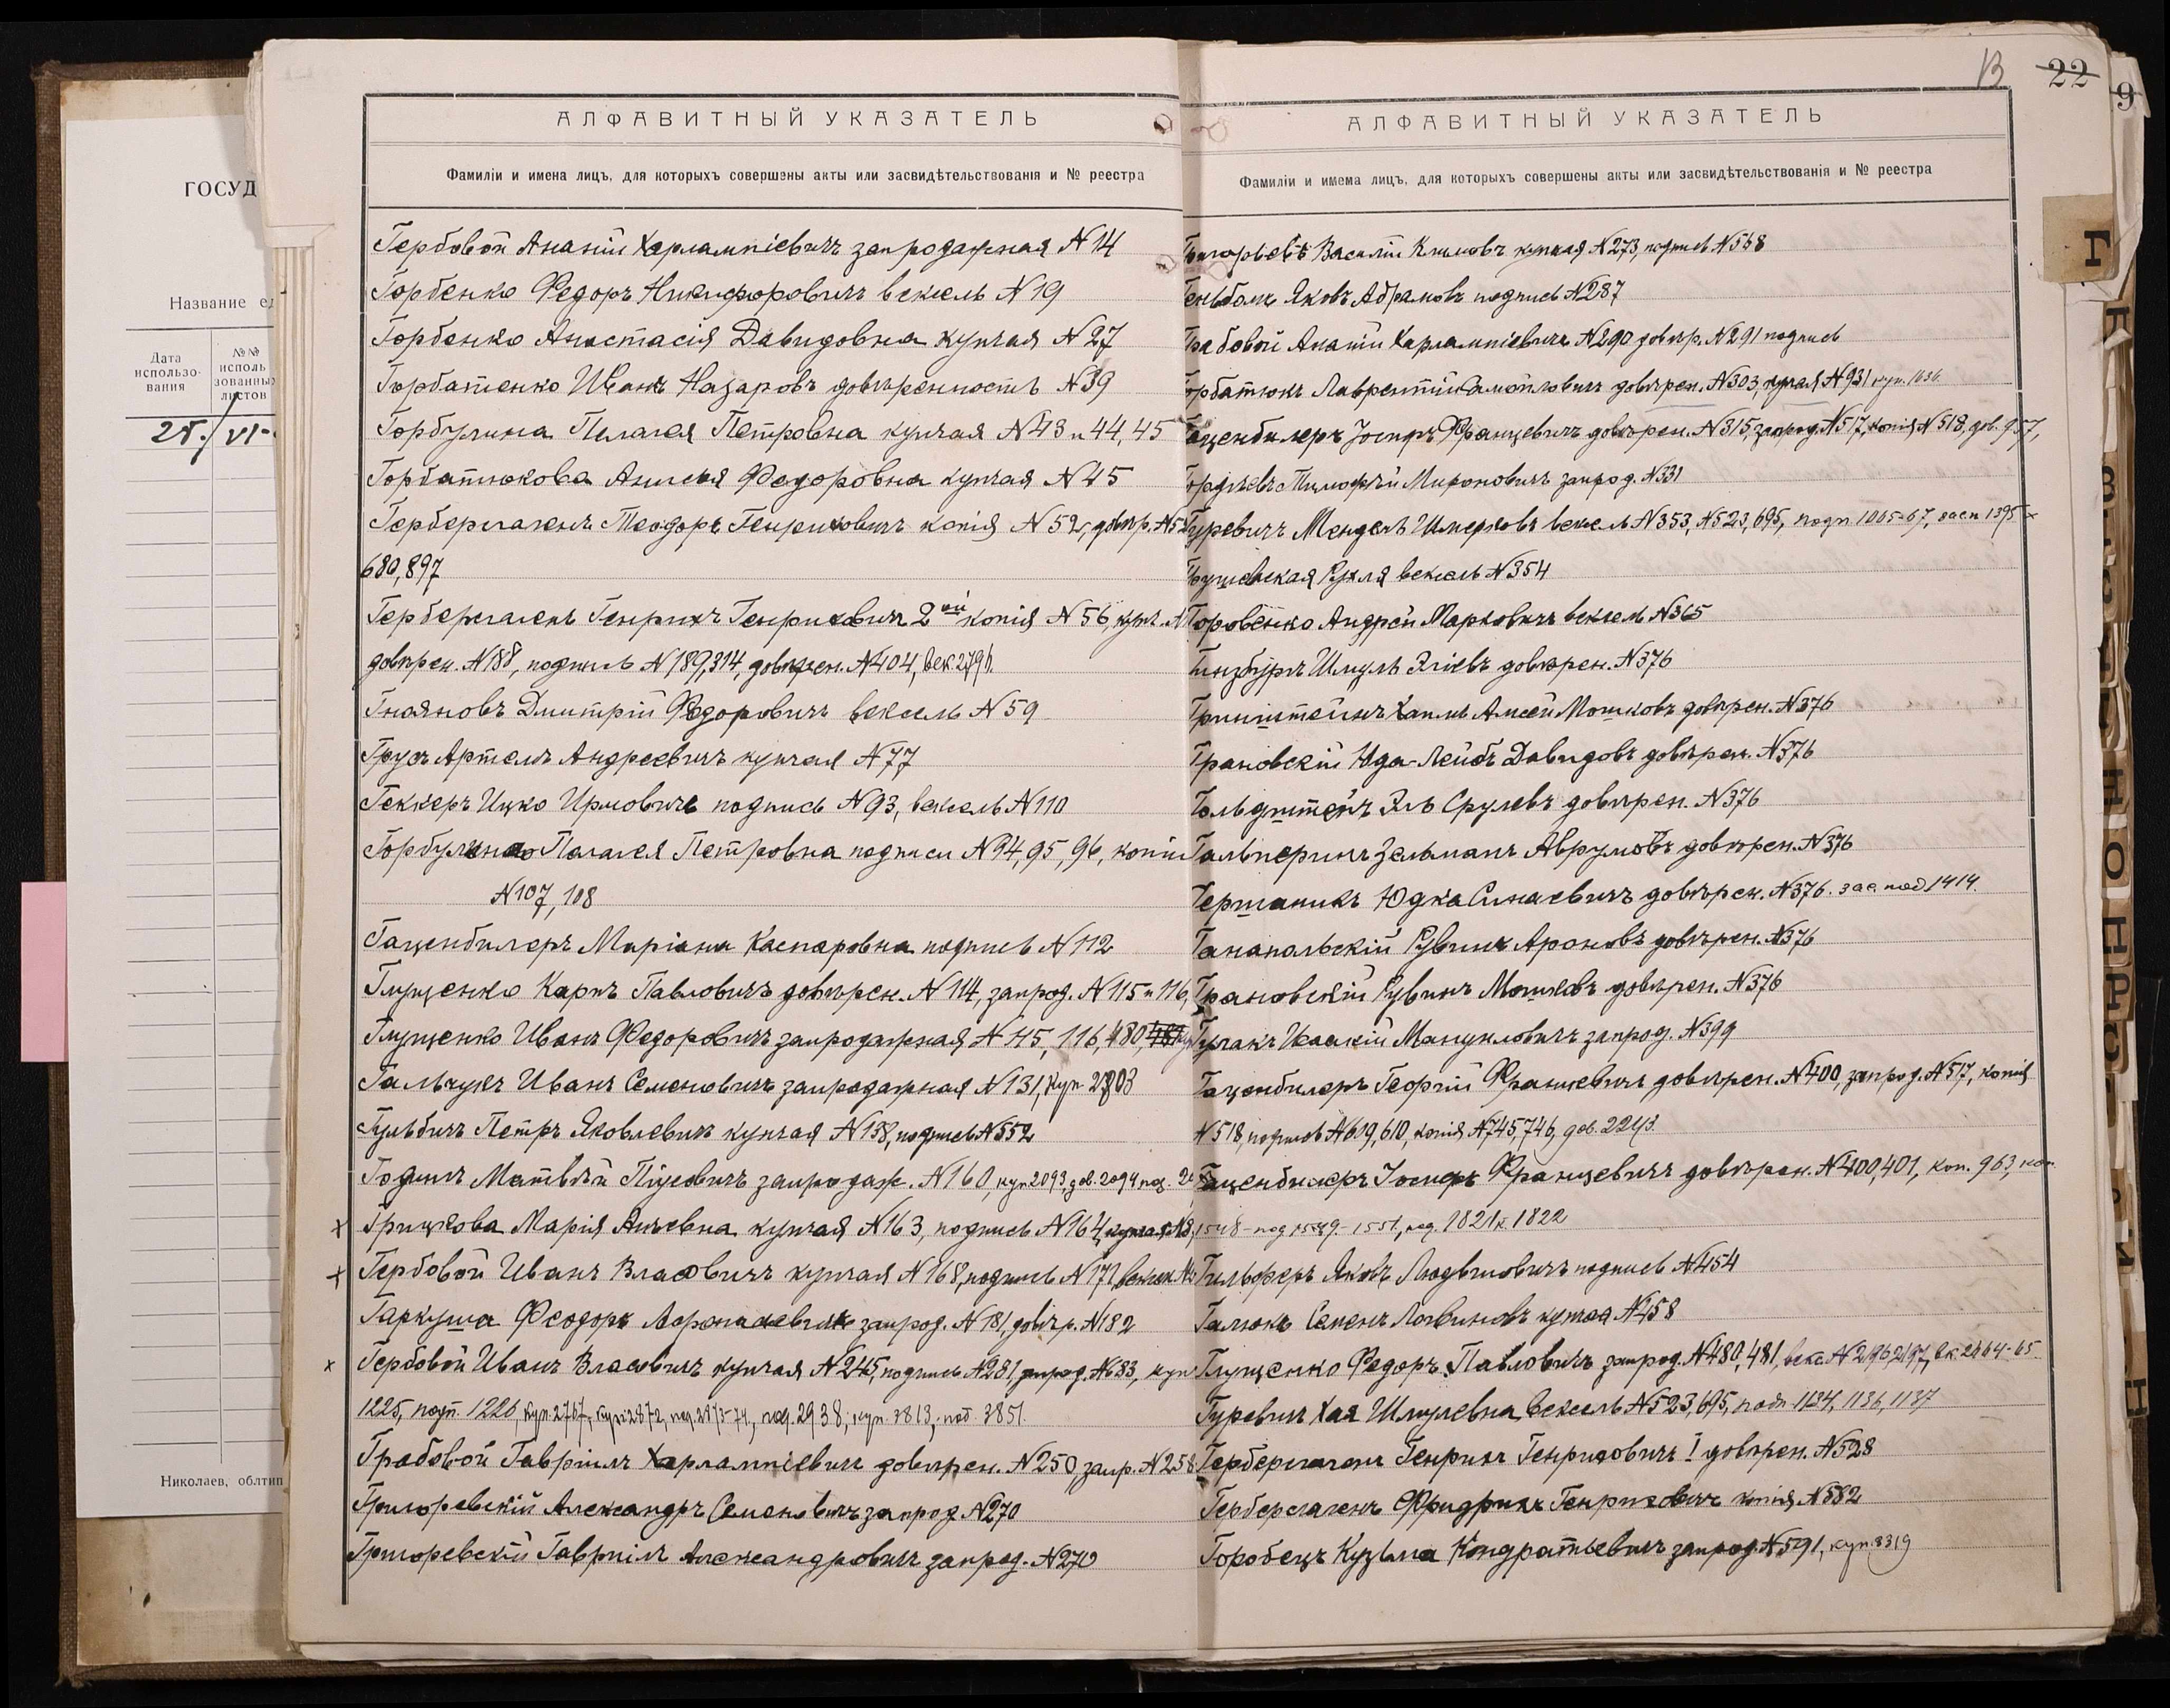 ГОСУД
Название ед
Дата использо-вания
№№ исполь зованных листов
25./VI-
Николаев, облтип
АЛФАВИТНЫЙ УКАЗАТЕЛЬ
Фамиліи и имена лицъ, для которыхъ совершены акты или засвидѣтельствованія и № реестра
Гербовой Ананій Харлампіевичъ запродажная №14
Горбенко Федоръ Никифоровичъ вексель №19
Горбенко Анастасія Давидовна купчая №27
Горбатенко Иванъ Назаровъ довѣренность №39
Горбулина Пелагея Петровна купчая №43 и 44, 45
Горбатюкова Анисья Федоровна купчая №45
Гербергагенъ Теодоръ Генриховичъ копія №52, довѣр. №52
680, 897
Гербергагенъ Генрихъ Генриховичъ 2ой копія №56, купч. №
довѣрен. №188, подпись №189, 314, довѣрен. №404, век. 2791.
Гнояновъ Дмитрій Федоровичъ вексель №59
Грусъ Артемъ Андреевичъ купчая №77
Геккеръ Ицко Ирмовичъ подпись №93, вексель №110
Пелагея Петровна подписи №94, 95, 96, копіи
№107, 108
Гаценбилеръ Маріана Каспаровна подпись №112
Глущенко Карпъ Павловичъ довѣрен. №114, запрод. №115 и 116,
Глущенко Иванъ Федоровичъ запродажная №115, 116, 480, 481
Гальчукъ Иванъ Семеновичъ запродажная №131, куп 2803
Гульбичъ Петръ Яковлевичъ купчая №138, подпись №552
Годинъ Матвѣй запродаж. №160, куп 2093, дов. 2094 под.
х Грицкова Марія купчая №163, подпись №164, купчая
х Гербовой Иванъ Власовичъ купчая №168, подпись №171, вексел
Гаркуша Феодоръ запрод. №181, довѣр. №182
х Гербовой Иванъ Власовичъ купчая №245, подпись №281, запрод. №683, куп
1225, подп. 1226, куп. 2767, куп. 2872, под. 2873-74, под. 2938, куп. 3813, под. 3851.
Грабовой Гавріилъ Харлампіевичъ довѣрен. №250, запр. №258
Григоревскій Александръ Семеновичъ запрод №270
Григоревскій Гавріилъ Александровичъ запрод. №270
13
22
9
Г
АЛФАВИТНЫЙ УКАЗАТЕЛЬ
Фамиліи и имема лицъ, для которыхъ совершены акты или засвидѣтельствованія и № реестра
Григорьевъ Василій Климовъ купчая №273, подпись №548
Яковъ Абрамовъ подпись №287
Грабовой Ананій Харлампіевичъ №290 довѣр. №291 подпись
Горбатюкъ Лаврентій Самойловичъ довѣрен. №303, купчая №931 куп. 1636.
Гаценбилеръ Іосифъ Францевичъ довѣрен. №315, запрод. №517, копія №518, дов. 957,
Гордѣевъ Тимофѣй Мироновичъ запрод. №331
Гуревичъ Мендель Шмерковъ вексель №353, №523, 695, подп 1065-67, засв 1395
Рухля вексель №354
Горовенко Андрей Марковичъ вексель №365
Гинзбургъ Шмуль Эліевъ довѣрен. №376
Гринштейнъ Хаимъ Мошковъ довѣрен. №376
Грановскій Юда-Лейбъ Давидовъ довѣрен. №376
Гольдштейнъ Эль Срулевъ довѣрен. №376
Гальперинъ Зельманъ Аврумовъ довѣрен. №376
Гершаникъ Юдка Синаевичъ довѣрен. №376. зас. под 1414.
Ганапольскій Рувинъ Ароновъ довѣрен. №376
Грановскій Рувинъ Мошковъ довѣрен. №376
Исаакій Мануиловичъ запрод. №399
Гаценбилеръ Георгій Францевичъ довѣрен. №400, запрод. №517, копія
№518, подпись №609, 610, копія №745, 746, дов. 2243.
Гаценбилеръ Іосифъ Францевичъ довѣрен. №400, 401, коп. 963, коп.
1548 - под 1549 - 1551, под. 1821 к. 1822
Гильферъ Яковъ Людвиговичъ подпись №454
Галюкъ Семенъ Логвиновъ купчая №458
Глущенко Федоръ Павловичъ запрод. №480, 481, векс №2196, 2197, вк. 2464-65.
Гуревичъ Хая Шмулевна вексель №523, 695, подп 1134, 1136, 1137
Гербергагенъ Генрихъ Генриховичъ I довѣрен. №528
Гербергагенъ Фридрихъ Генриховичъ копія №582
Горобецъ Кузьма Кондратьевичъ запрод. №591, куп. 3319